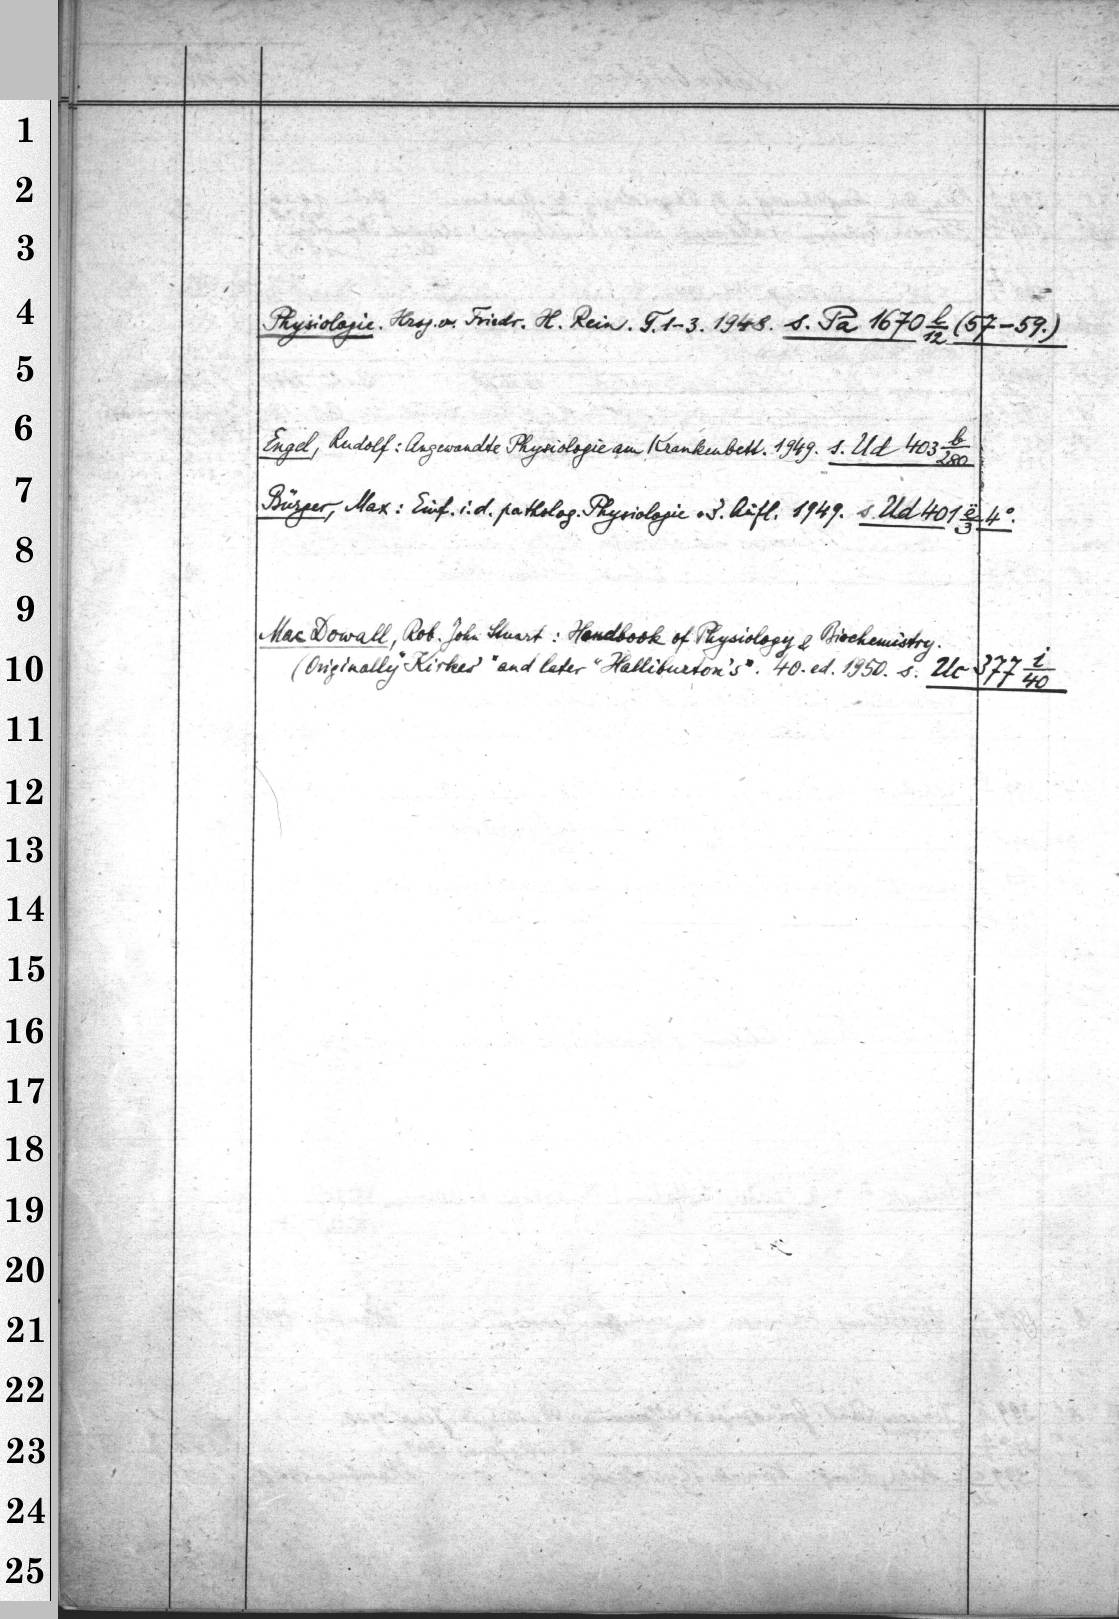 1
2
3
4
Physiologie. Hrsg. v. Friedr. H. Rein. T. 1-3. 1948. s. Pa 1670 b/12 (57-59.)
5
6
Engel, Rudolf: Angewandte Physiologie am Krankenbett. 1949. s. Ud 403 b/280
7
Bürger, Max: Einf. i. d. patholog. Physiologie. 3. Aufl. 1949. s. Ud 401 ë/3 4°.
8
9
Mac Dowall, Rob. John Stuart: Handbook of Physiology & Biochemistry.
10
(Originally "Kirkes'" and later "Halliburton's". 40. ed. 1950. s. Uc 377 i/40
11
12
13
14
15
16
17
18
19
20
21
22
23
24
25